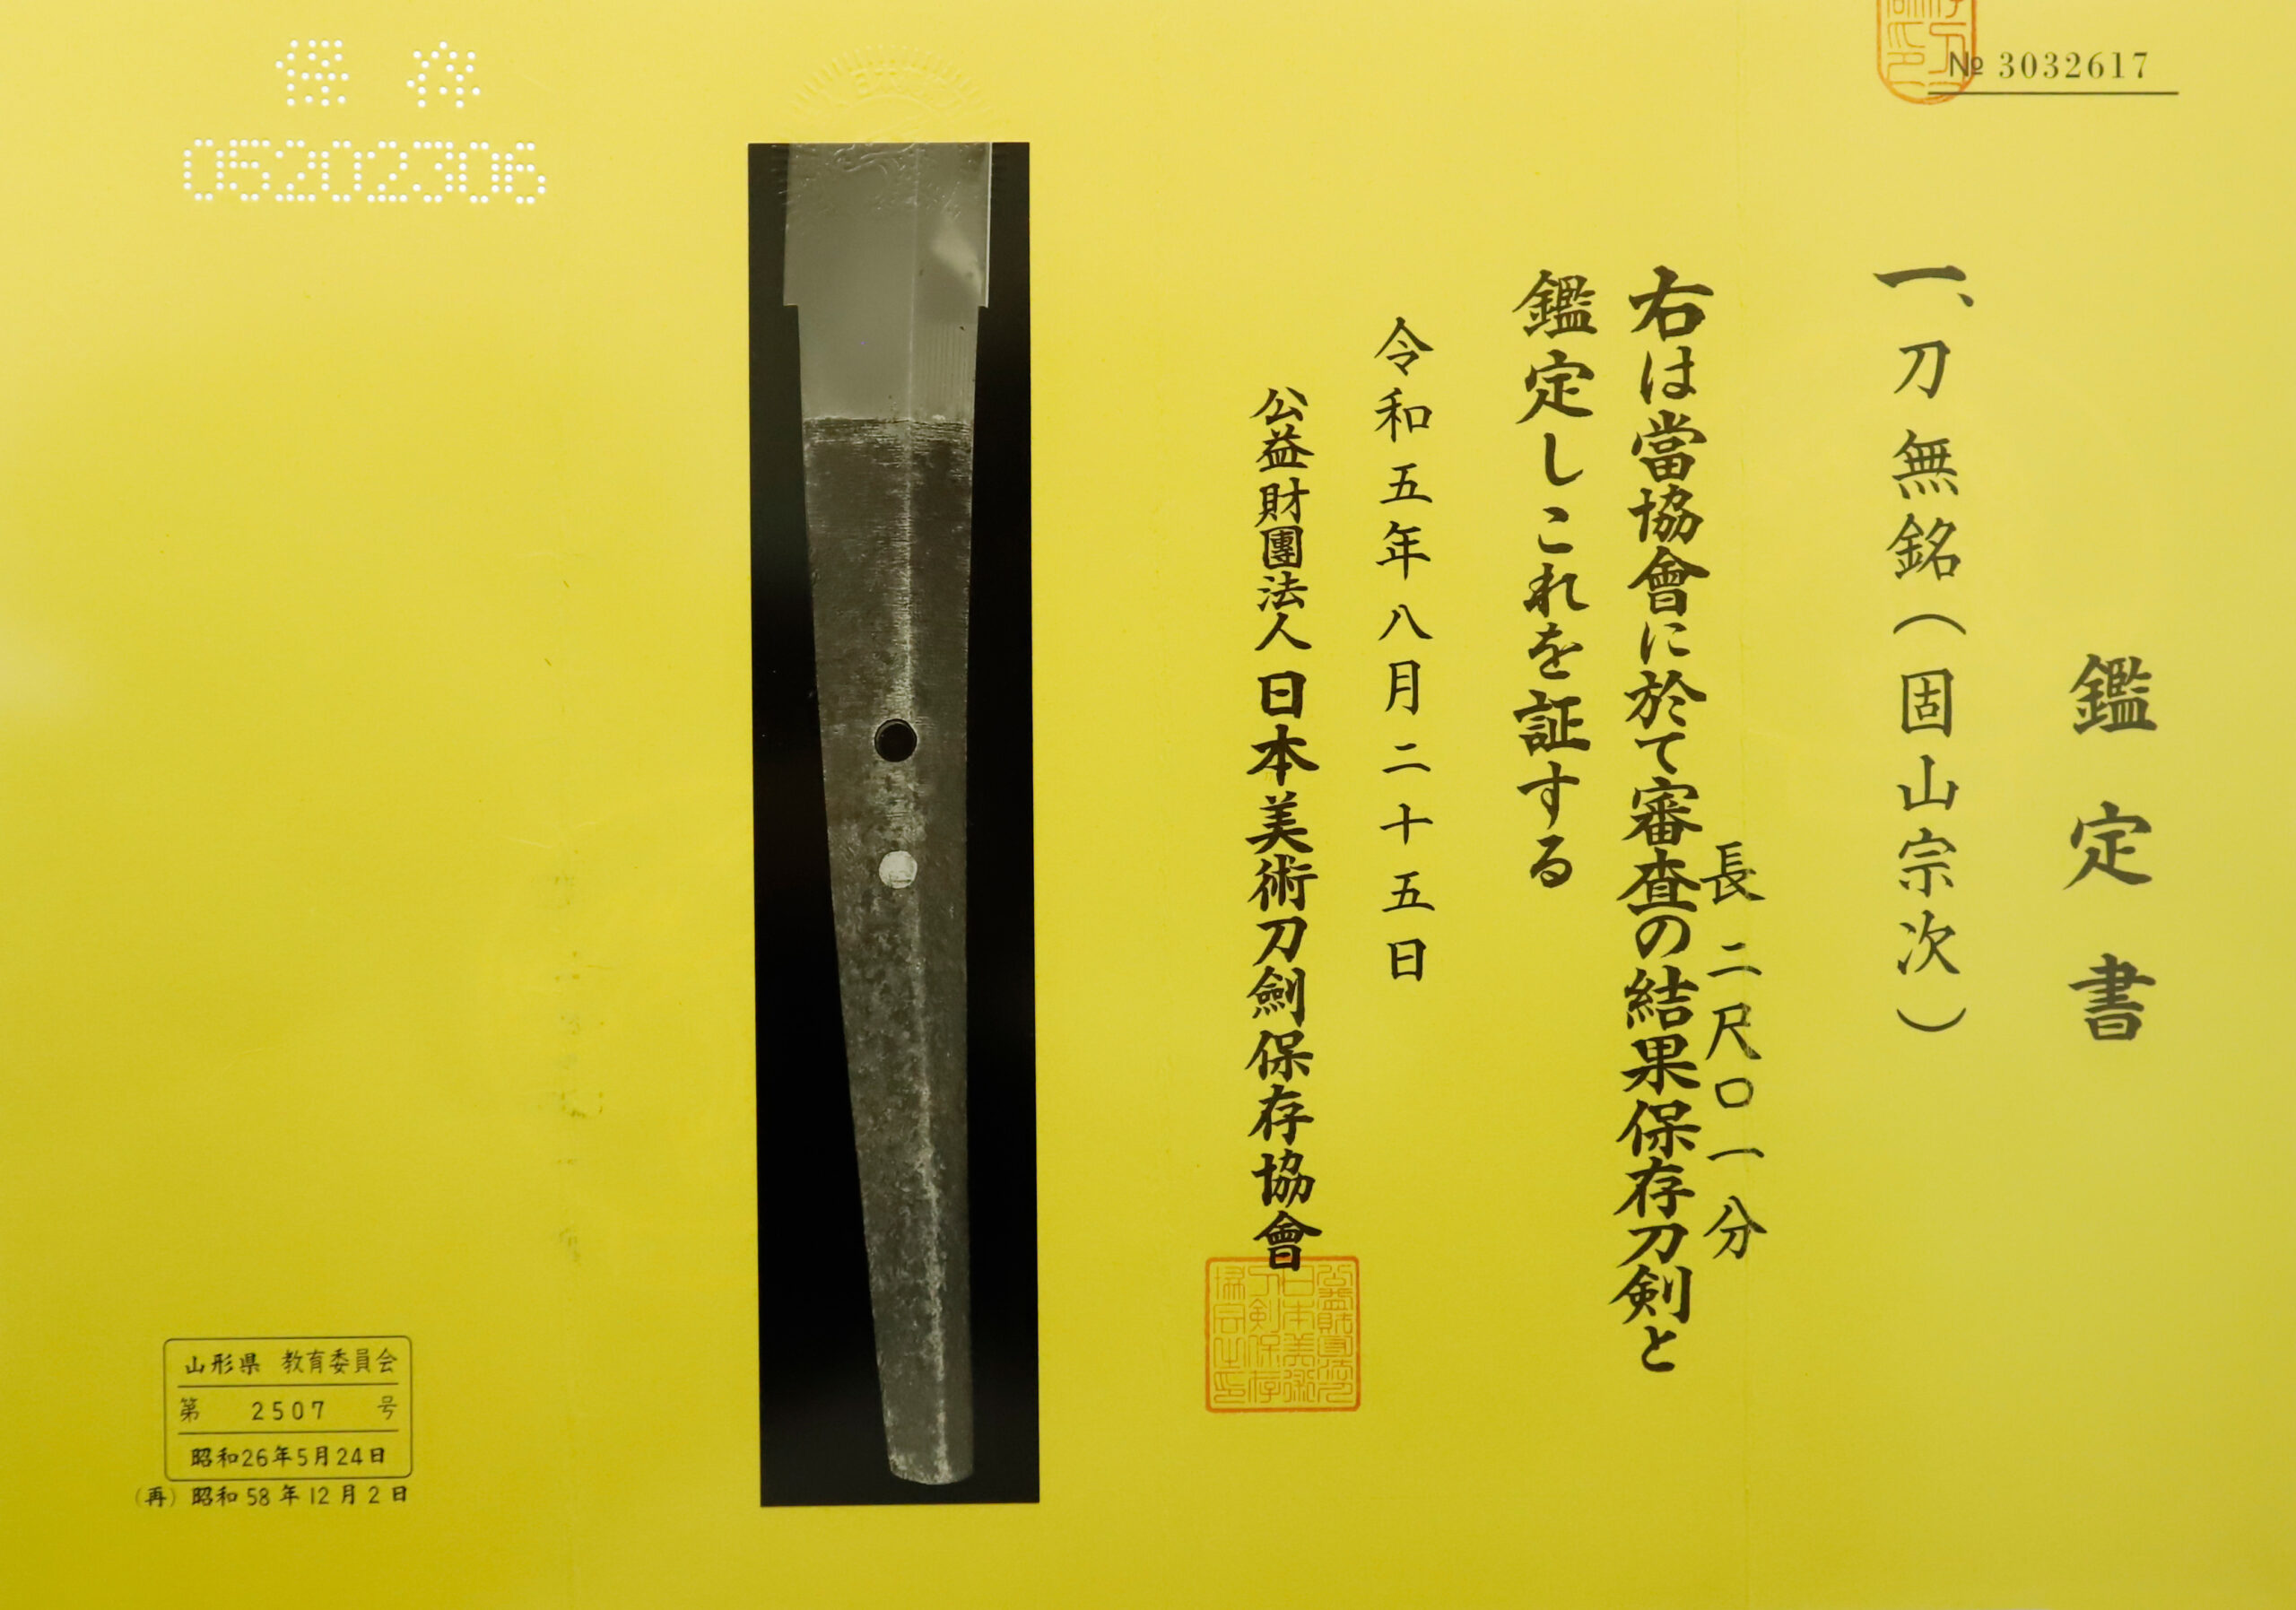 № 3032617
鑑定書
一、刀 無銘(固山宗次)
長 二尺〇一分
右は當協會に於て審査の結果保存刀剣と
鑑定しこれを証する
令和五年八月二十五日
公益財團法人 日本美術刀劍保存協會
保存
05202306
山形県 教育委員会
第 2507 号
昭和26年5月24日
(再) 昭和58年12月2日